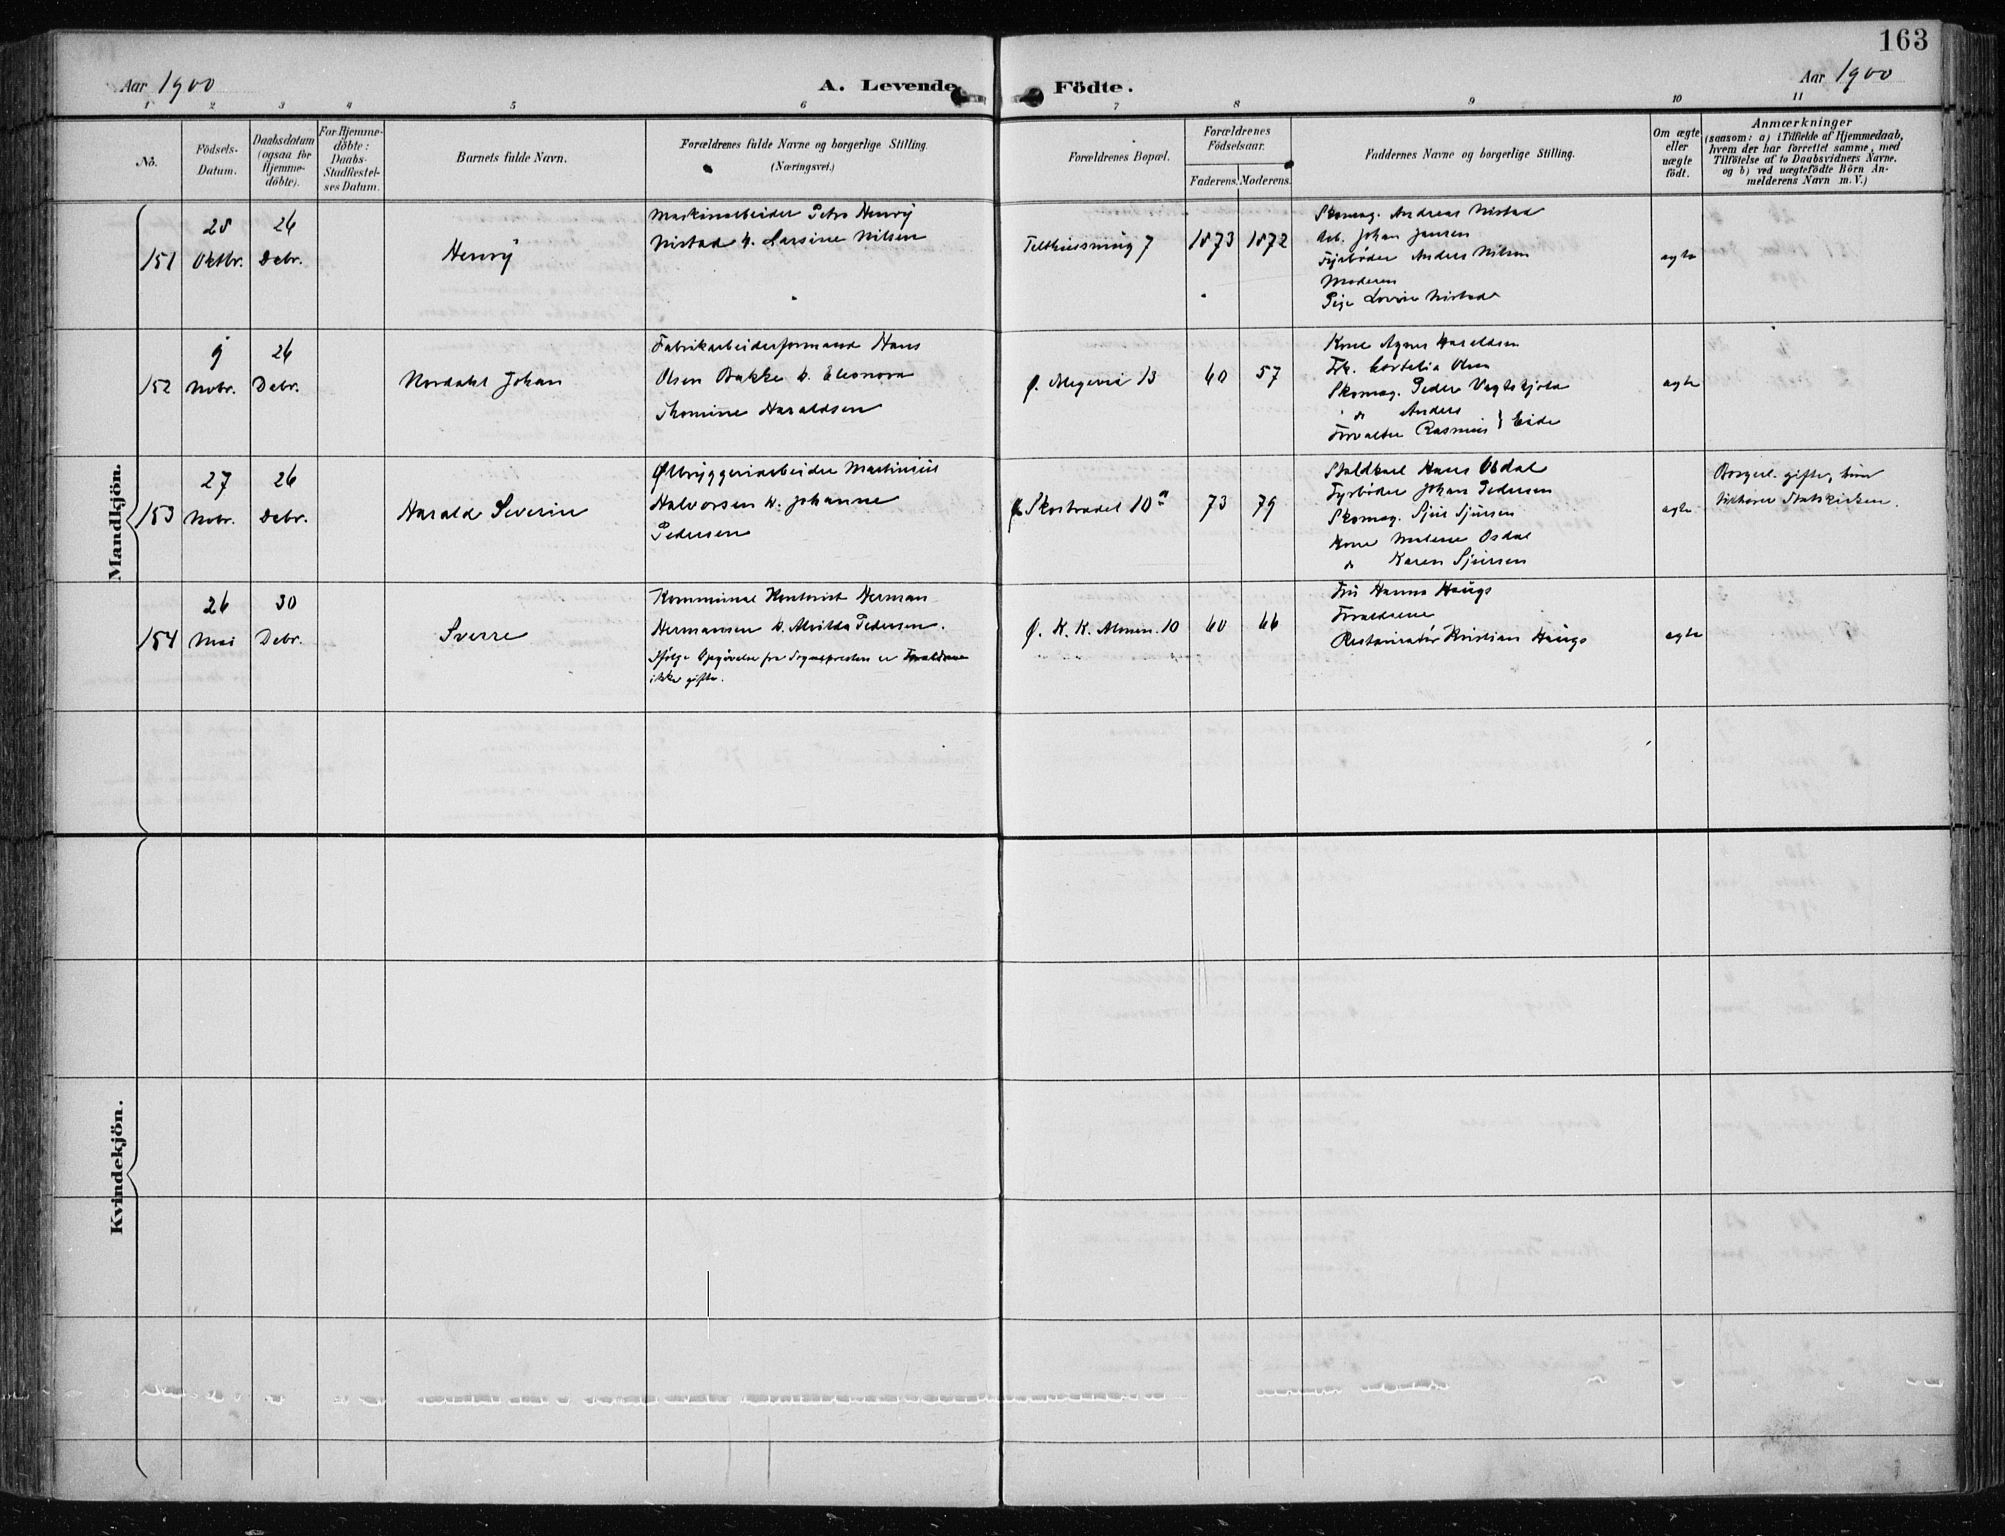 163
Aar 1900
A. Levende Födte.
Aar 1900
1 2 3 4 5 6 7 8 9 10 11
No.
Födsels-
Datum.
Daabsdatum
(ogsaa for
Hjemme-
döbte).
For Hjemme-
döbte:
Daabs-
Stadfæstel-
ses Datum.
Barnets fulde Navn.
Forældrenes fulde Navne og borgerlige Stilling.
(Næringsvei.)
Forældrenes Bopæl.
Forældrenes
Födselsaar.
Faderens.
Moderens.
Faddernes Navne og borgerlige Stilling.
Om ægte
eller
uægte
födt.
Anmærkninger
(saasom: a) i Tilfælde af Hjemmedaab,
hvem der har forrettet samme, med
Tilföielse af to Daabsvidners Navne,
og b) ved uægtefödte Börn An-
melderens Navn m. V.)
Mandkjön.
151
28
Oktbr.
26
Debr.
Henry
Maskinarbeider Petro Henry
Nistad h. Larsine Nilsen
Telthussmug 7
1873
1872
Skomag. Andreas Nistad
Arb. Johan Jansen
Fyrbøder Anders Nilsen
Moderen
Pige Nistad
ægte
152
9
Nobr.
26
Debr.
Nordahl Johan
Fabrikarbeiderformand Hans
Olsen Bakke h. Eleonora
Thomine Haraldsen
Ø. 13
60
57
Kone Agnes Haraldsen
Frk. Olsen
Skomag. Peder
" Anders
Forvalter Rasmus } Eide
ægte
153
27
Nobr.
26
Debr.
Harald Severin
Ølbryggeriarbeider Martinius
Halvorsen h. Johanne
Pedersen
Skostrædet 10a
73
79
Staldkarl Hans Osdal
Fyrbøder Johan Pedersen
Skomag. Sjur Sjursen
Kone Malene Osdal
" Karen Sjursen
ægte
Borgerl. gifte, hun
tilhører Statskirken.
154
26
Mai
30
Debr.
Sverre
Kommunal Kontorist Herman
Hermansen h. Alvilda Pedersen.
Ifølge Opgivelse fra Sognepresten er Forældrene
ikke gifte.
Ø. K. K. Almen. 10
60
66
Fru Hanna Haugs
Forældrene
Restauratør Kristian Haugs
ægte
Kvindekjön.